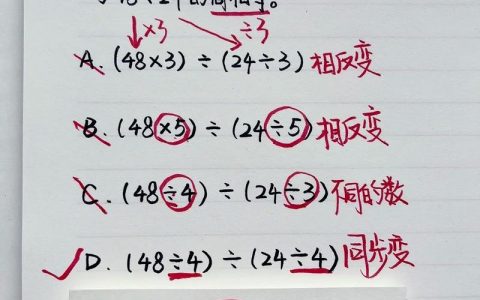 的商相等。
×3 ÷3
A. (48×3) ÷ (24÷3) 相反变
B. (48×5) ÷ (24÷5) 相反变
C. (48÷4) ÷ (24÷3) 不同的数
D. (48÷4) ÷ (24÷4) 同步变